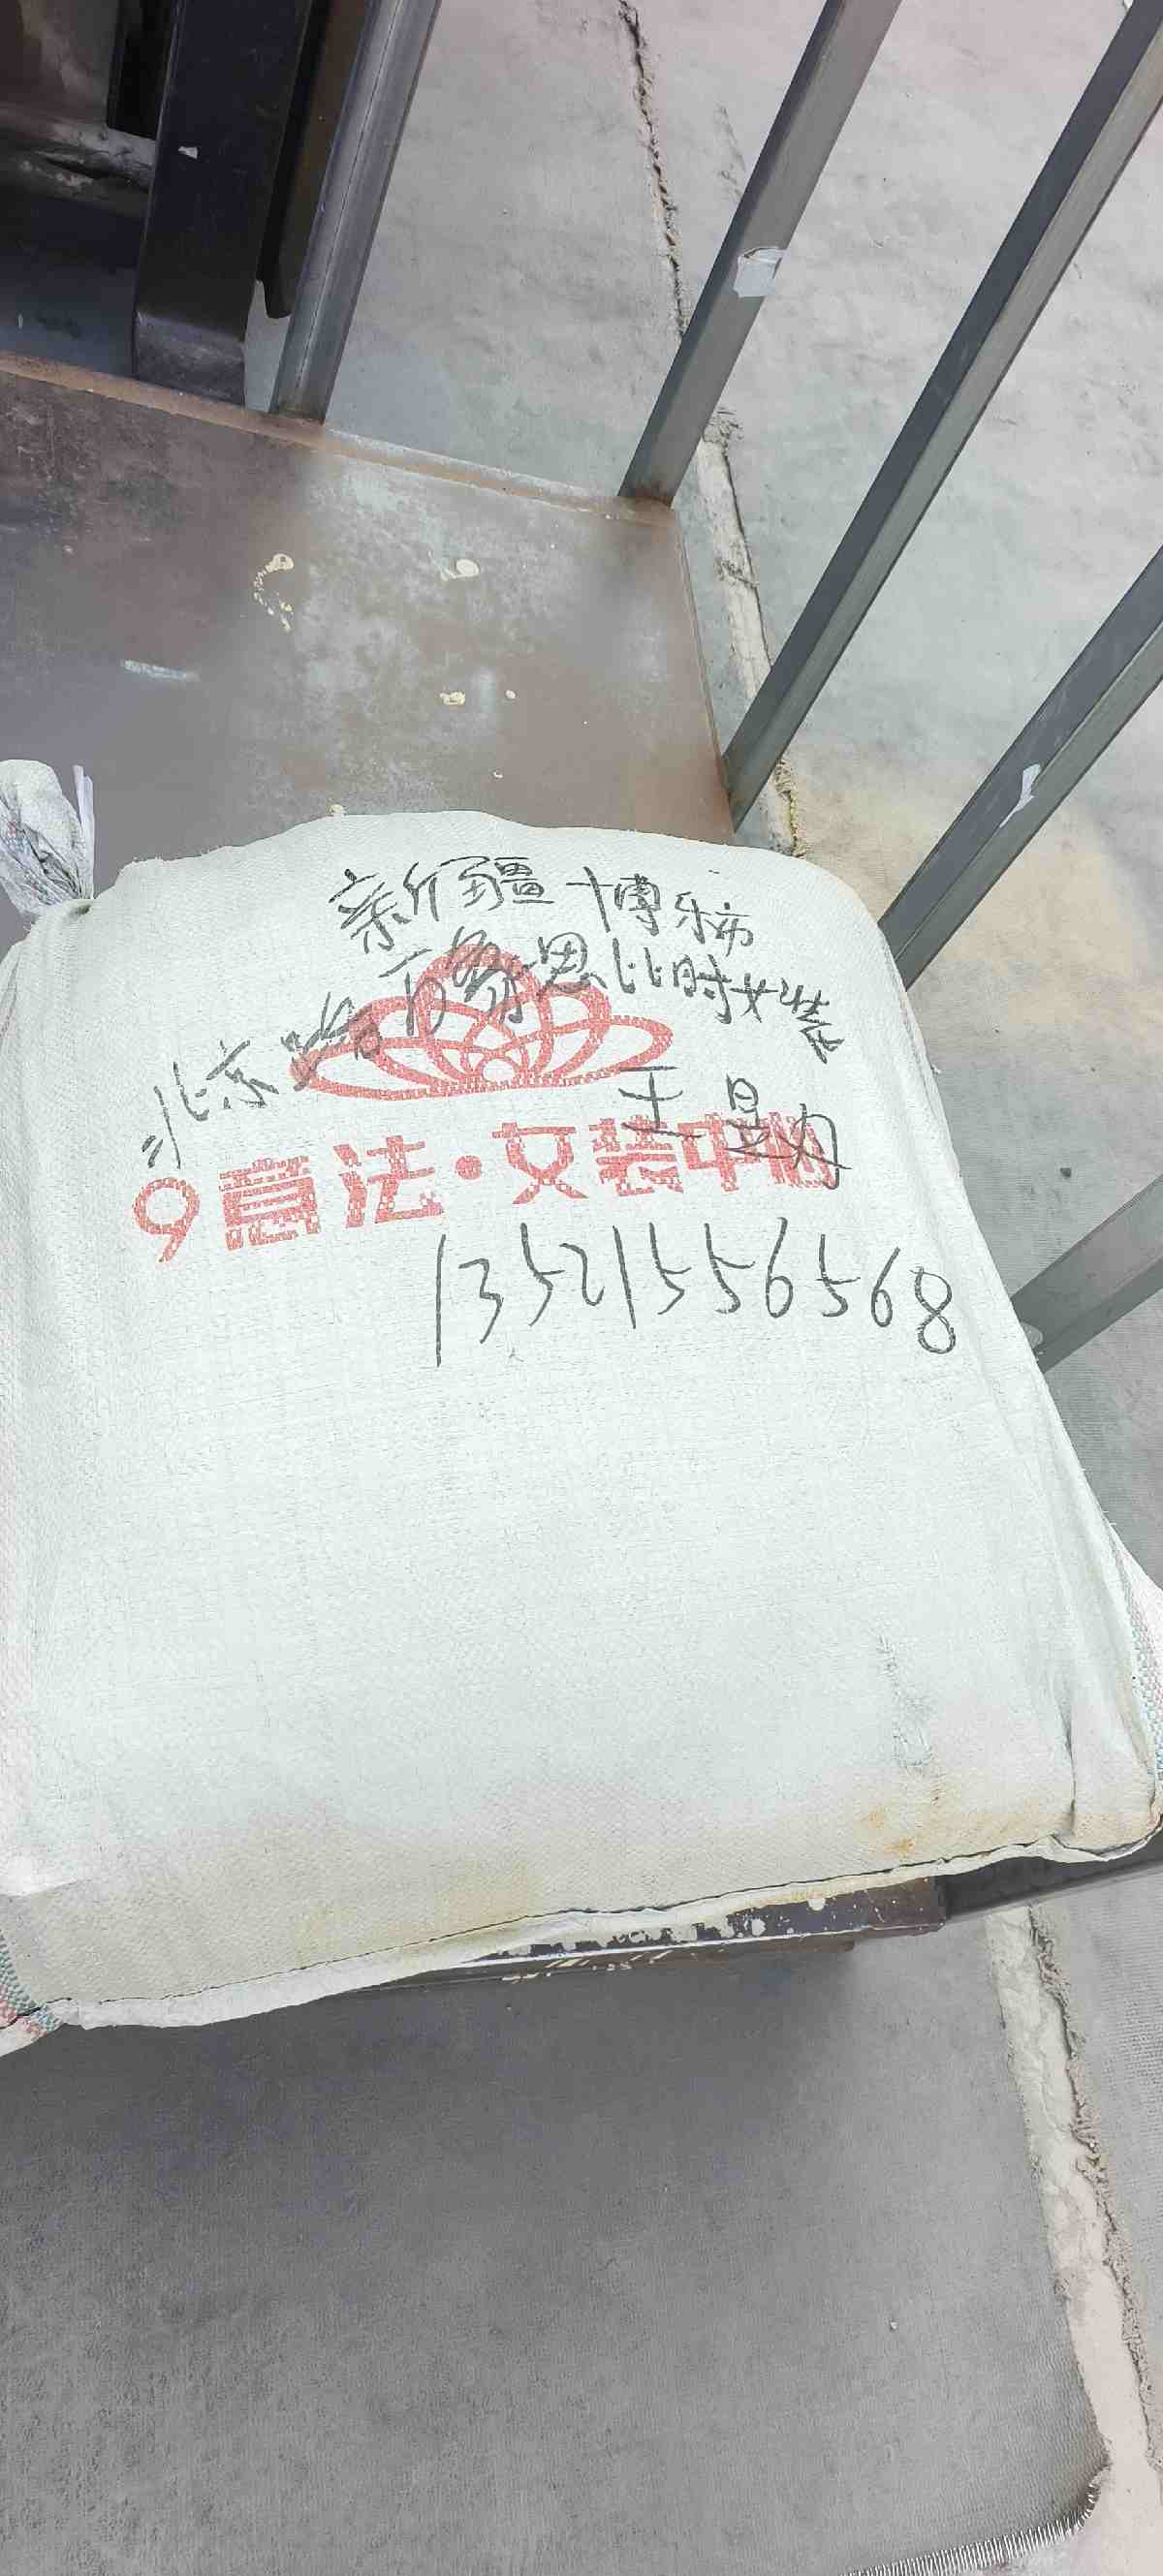 新疆博乐市
北京路百家思比时女装
王昱力
9意法·女装中心
13521556568